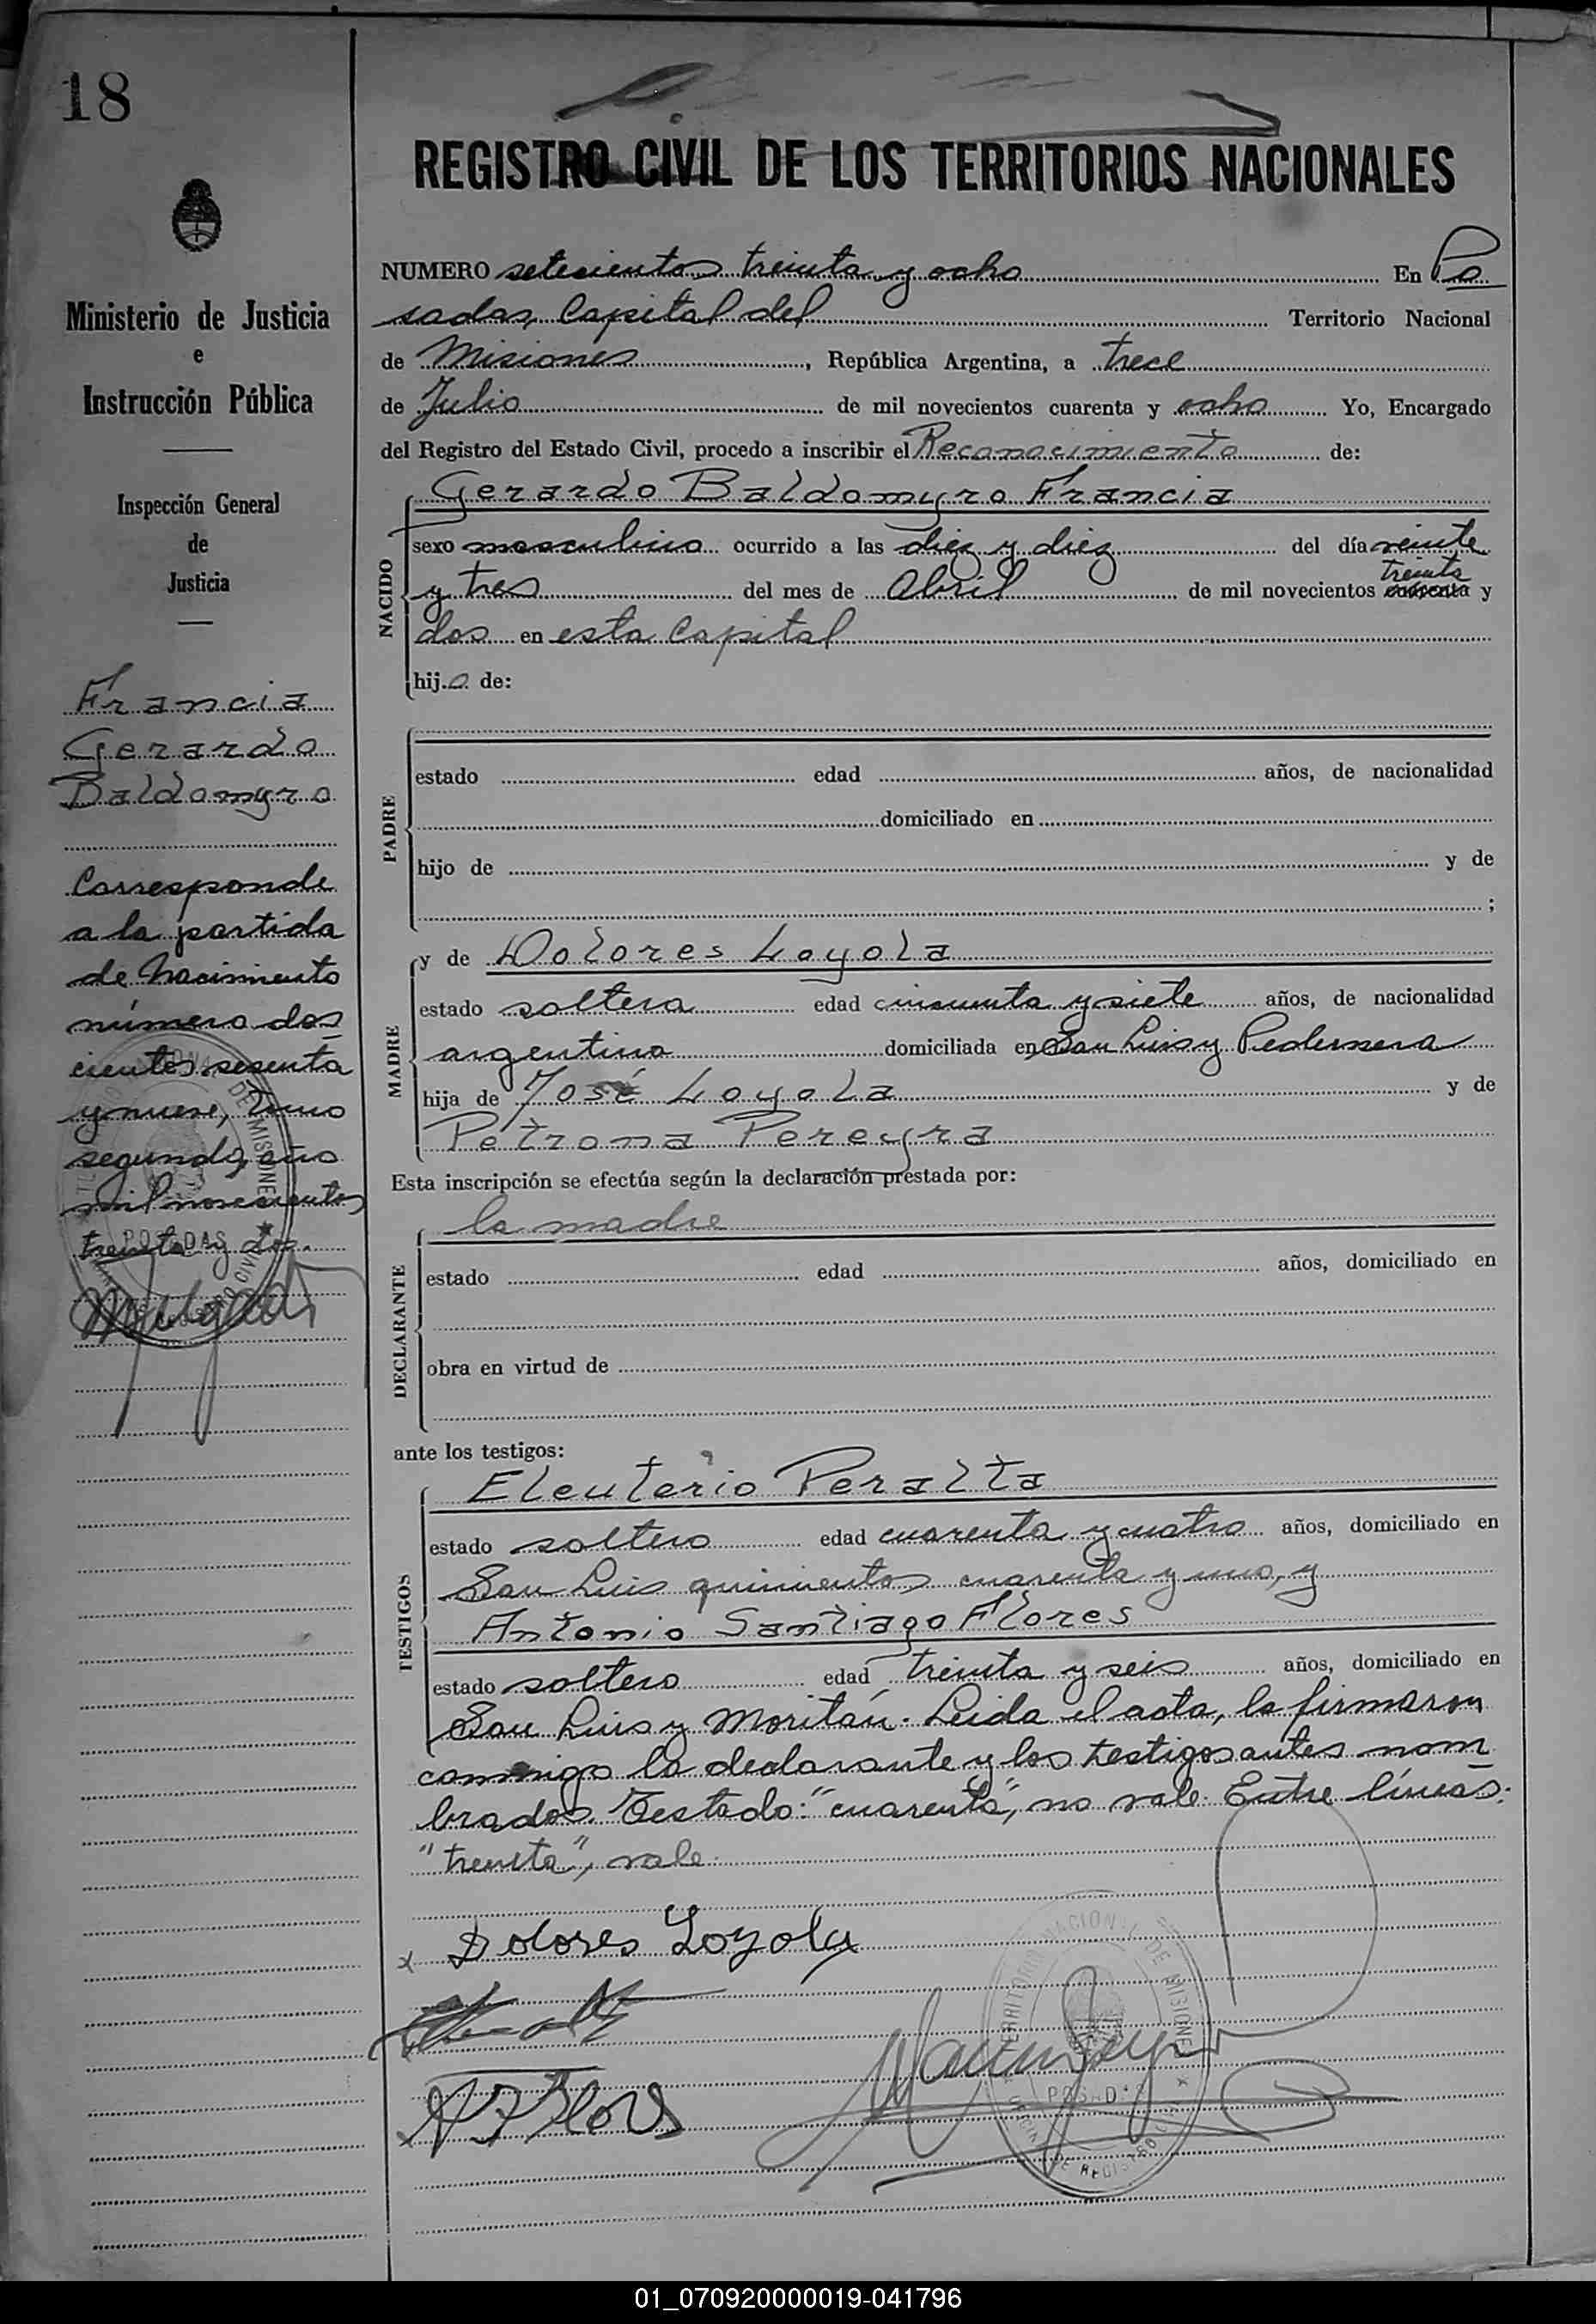 18
REGISTRO CIVIL DE LOS TERRITORIOS NACIONALES
Ministerio de Justicia
e
Instrucción Pública
Inspección General
de
Justicia
Francia
Gerardo
Baldomyro
Corresponde
a la partida
de Nacimiento
número dos
cientos sesenta
y nueve, tomo
segundo, año
mil novecientos
treinta y dos.
NUMERO setecientos treinta y ocho En Po
sadas, Capital del Territorio Nacional
de Misiones, República Argentina, a trece
de Julio de mil novecientos cuarenta y ocho Yo, Encargado
del Registro del Estado Civil, procedo a inscribir el Reconocimiento de:
NACIDO
Gerardo Baldomyro Francia
sexo masculino ocurrido a las diez y diez del día veinte
treinta
y tres del mes de Abril de mil novecientos cuarenta y
dos en esta Capital
hijo de:
PADRE
estado edad años, de nacionalidad
domiciliado en
hijo de y de
;
MADRE
y de Dolores Loyola
estado soltera edad cincuenta y siete años, de nacionalidad
argentina domiciliada en San Luis y Pedernera
hija de José Loyola y de
Petrona Pereyra
Esta inscripción se efectúa según la declaración prestada por:
DECLARANTE
la madre
estado edad años, domiciliado en
obra en virtud de
ante los testigos:
TESTIGOS
Eleuterio Peralta
estado soltero edad cuarenta y cuatro años, domiciliado en
San Luis quinientos cuarenta y uno, y
Antonio Santiago Flores
estado soltero edad treinta y seis años, domiciliado en
San Luis y Moritán. Leida el acta, la firmaron
conmigo la declarante y los testigos antes nom
brados. Testado: "cuarenta", no vale. Entre líneas:
"treinta", vale.
x Dolores Loyola
A S Flores
POSADAS
01_070920000019-041796